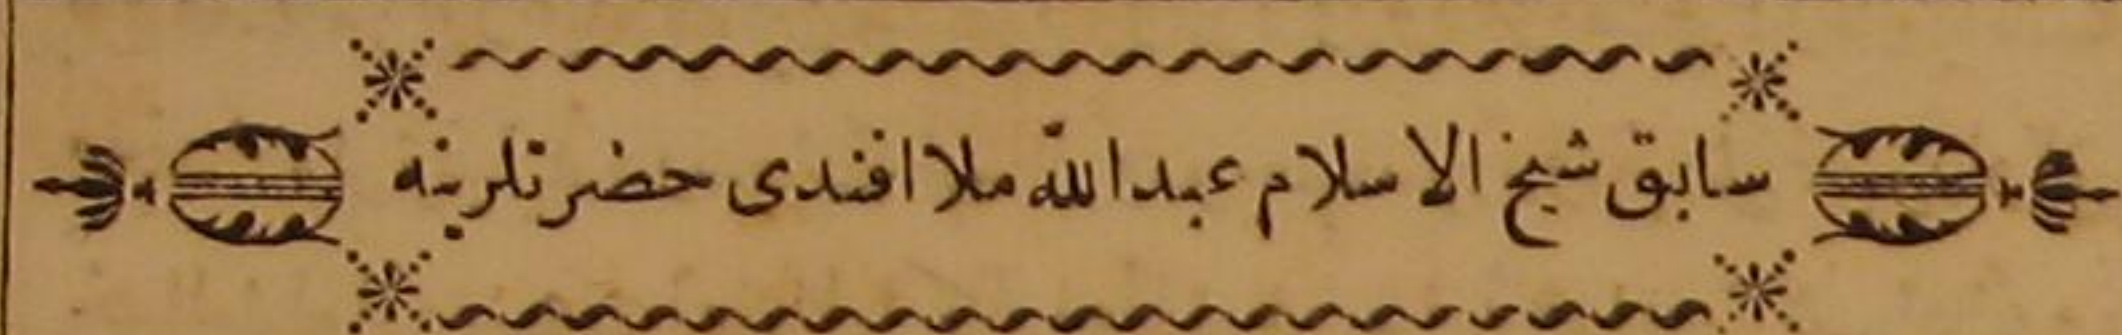 سابق شيخ الاسلام عبدالله ملا افندى حضرتلرينه